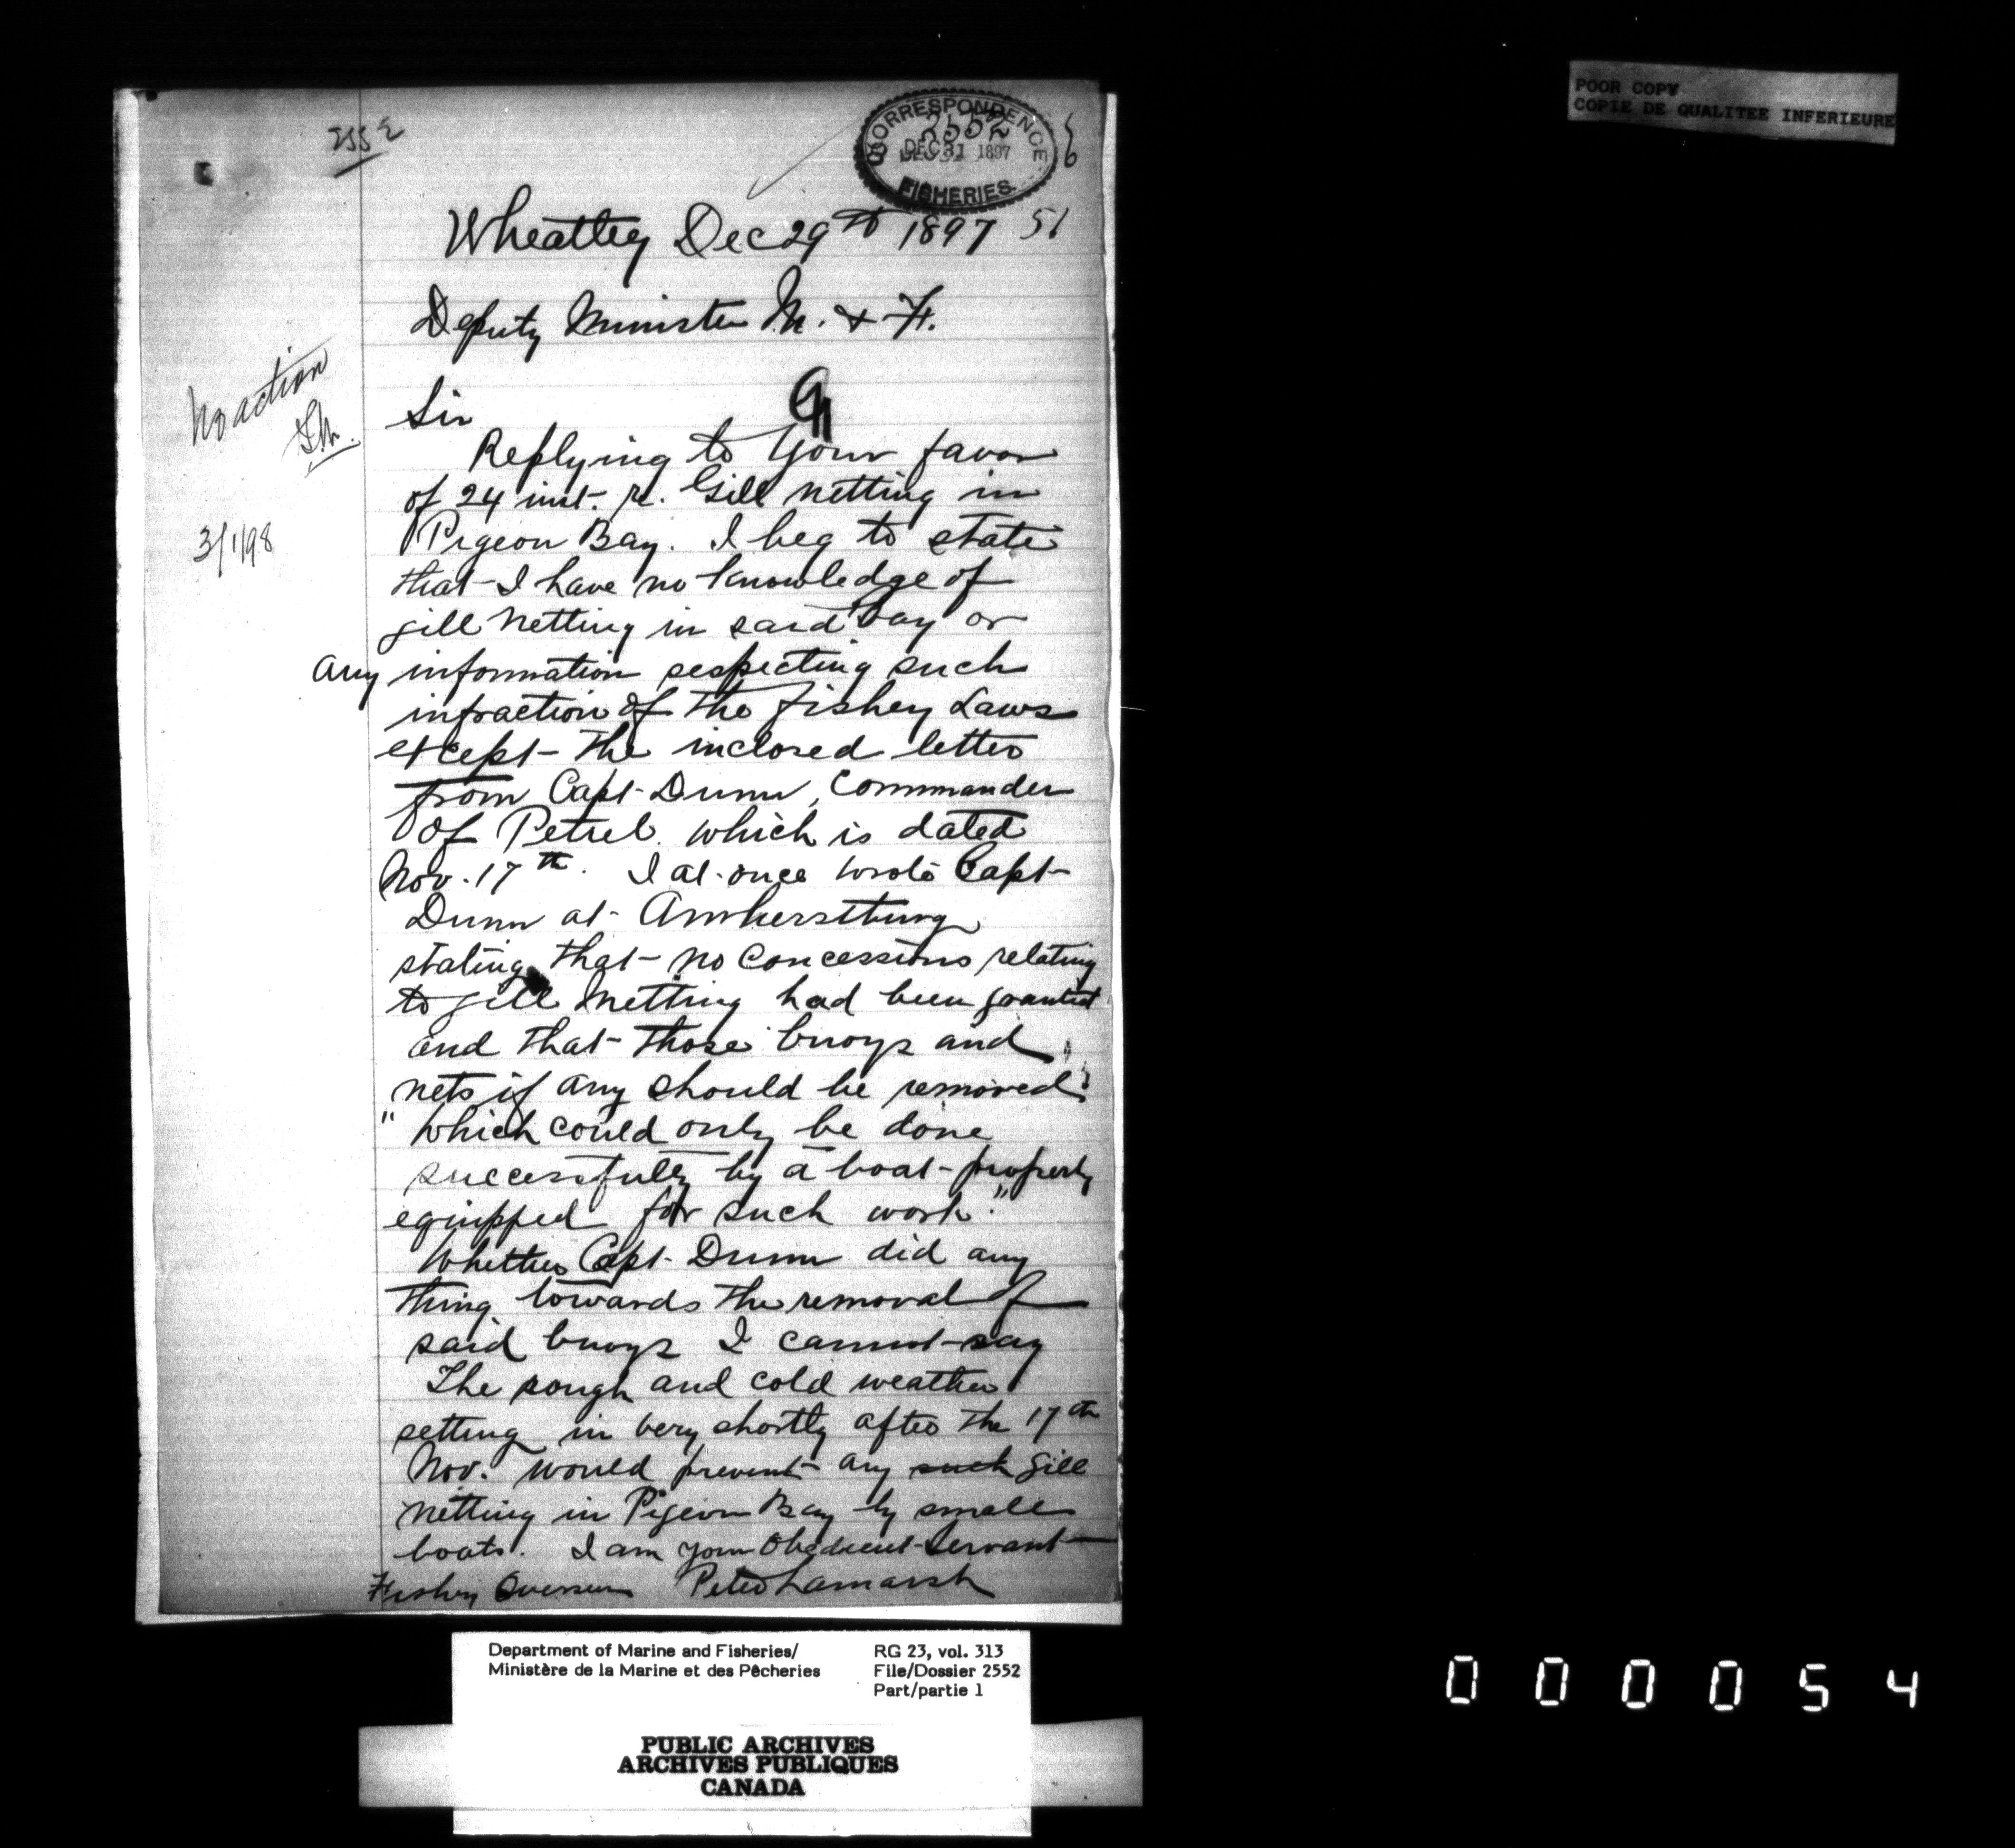 POOR COPY
COPIE DE QUALITEE INFERIEURE
2552
CORRESPONDENCE
2552
DEC 31 1897
FISHERIES.
Wheatley Dec 29th 1897
51
Deputy Minister M. & F.
No action
3/1/98
Sir
Replying to your favor
of 24 inst. re. Gill netting in
Pigeon Bay. I beg to state
that I have no knowledge of
gill netting in said Bay or
any information respecting such
infraction of the Fishey Laws
except the inclosed letter
from Capt Dunn, Commander
of Petrel which is dated
Nov. 17th. I at once wrote Capt
Dunn at Amherstburg
stating that no concessions relating
to gill netting had been granted
and that those buoys and
nets if any should be removed
"which could only be done
successfully by a boat properly
equipped for such work."
Whether Capt Dunn did any
thing towards the removal of
said buoys I cannot say
The rough and cold weather
setting in very shortly after the 17th
Nov. would prevent any such gill
netting in Pigeon Bay by small
boats. I am your Obedient Servant
Fishery Overseer Peter Lamarsh
Department of Marine and Fisheries/
Ministère de la Marine et des Pêcheries
RG 23, vol. 313
File/Dossier 2552
Part/partie 1
PUBLIC ARCHIVES
ARCHIVES PUBLIQUES
CANADA
000054